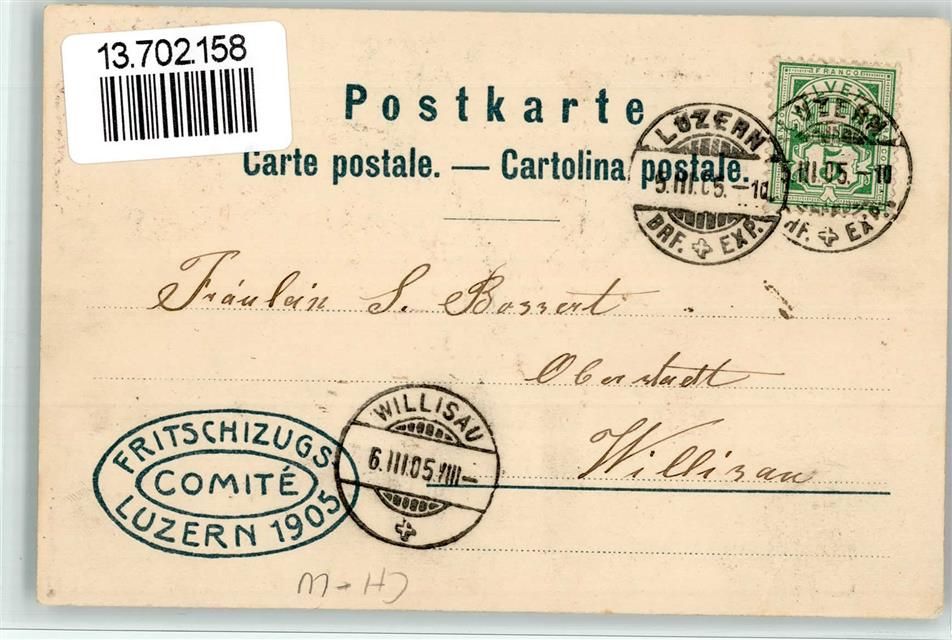 13.702.158
Postkarte
Carte postale. — Cartolina postale.
FRANCO
HELVETIA
LUZERN
5.III.05.–10
BRF. EXP.
LUZERN
5.III.05.–10
BRF. EXP.
Fräulein S. Bossert
Oberstadt
Willisau
WILLISAU
6.III.05.VIII–
FRITSCHIZUGS
COMITÉ
LUZERN 1905
CH-W